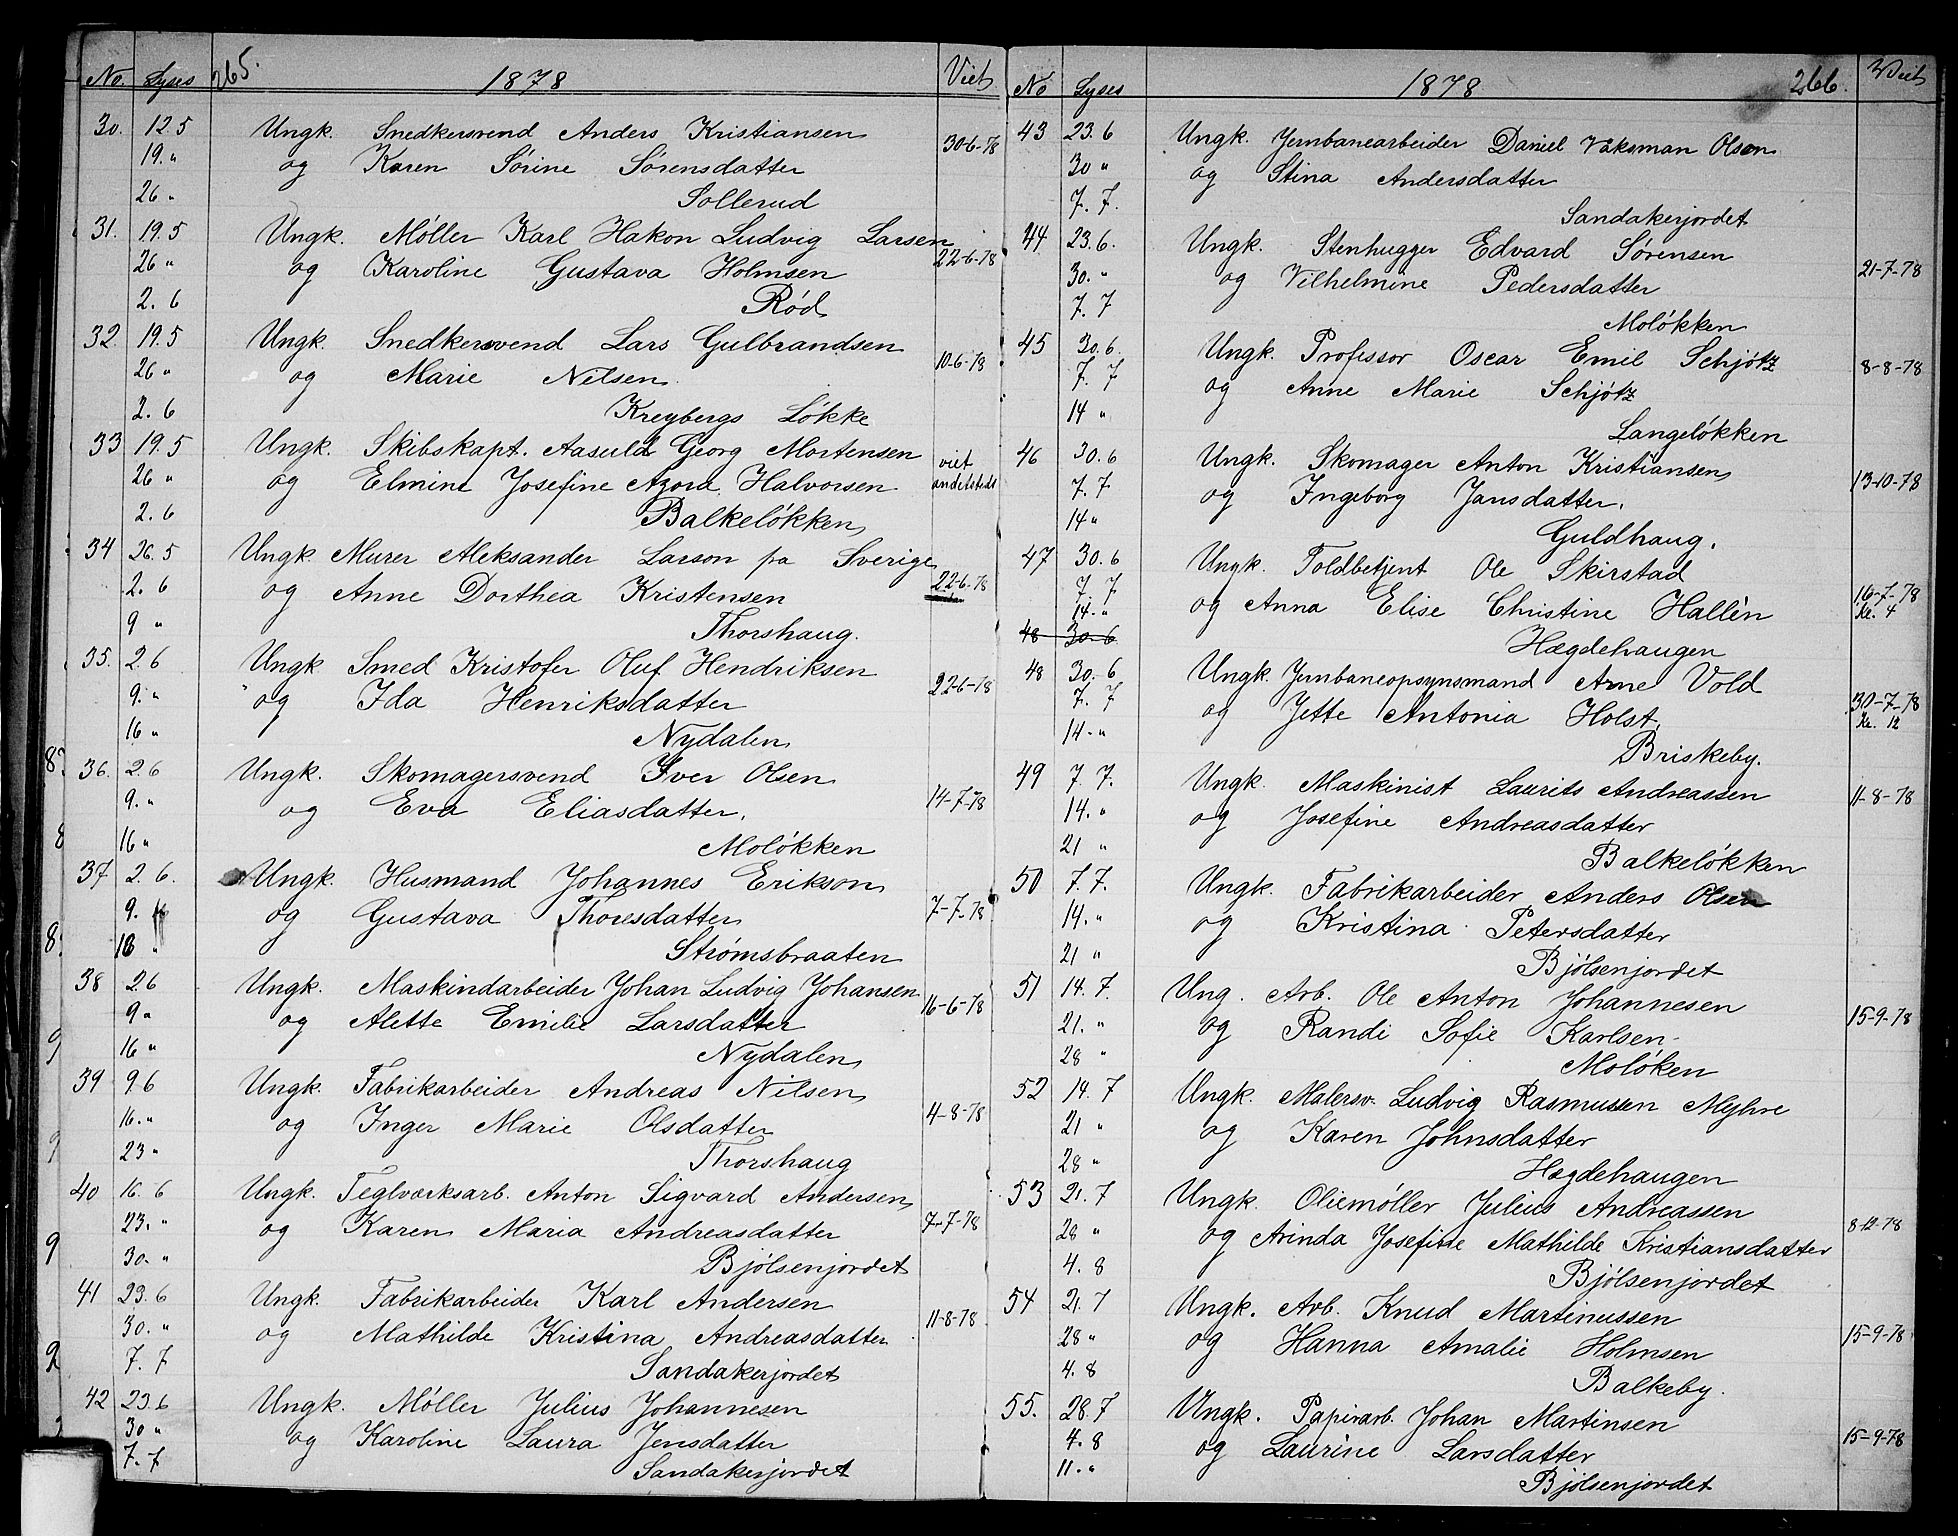 No. Lyses 265. 1878 Viet
30. 12.5 Ungk. Snedkersvend Anders Kristiansen
19. " og Karen Sörine Sörensdatter 30-6-78
26 " Sollerud
31. 19.5 Ungk. Møller Karl Hakon Ludvig Larsen
26 " og Karoline Gustava Holmsen 22-6-78
2. 6 Rød
32 19.5 Ungk. Snedkersvend Lars Gulbrandsen
26 " og Marie Nilsen 10-6-78
2. 6 Kreybergs Løkke
33 19.5 Ungk. Skibskapt. Aasuld Georg Mortensen viet
26 " og Elmine Josefine Azora Halvorsen andetsteds
2. 6 Balkeløkken
34 26.5 Ungk. Murer Aleksander Larson fra Sverige
2. 6 og Anne Dorthea Kristensen 22-6-78
9 " Thorshaug.
35. 2.6 Ungk Smed Kristofer Oluf Hendriksen
9. " og Ida Henriksdatter 22-6-78
16 " Nydalen
36. 2.6 Ungk. Skomagersvend Iver Olsen
9. " og Eva Eliasdatter. 14-7-78
16 " Moløkken
37 2. 6. Ungk. Husmand Johannes Erikson
9. " og Gustava Thoresdatter 7-7-78
16 " Strømsbraaten
38 2.6 Ungk. Maskindarbeider Johan Ludvig Johansen
9 " og Alette Emilie Larsdatter 16-6-78
16 " Nydalen
39 9.6 Ungk. Fabrikarbeider Andreas Nilsen
16. " og Inger Marie Olsdatter 4-8-78
23 " Thorshaug
40 16. 6 Ungk. Teglværksarb. Anton Sigvard Andersen
23. " og Karen Maria Andreasdatter 7-7-78
30. " Bjølsenjordet
41 23. 6 Ungk. Fabrikarbeider Karl Andersen
30. " og Mathilde Kristina Andreasdatter 11-8-78
7. 7 Sandakerjordet
42 23.6 Ungk. Møller Julius Johannesen
30 " og Karoline Laura Jensdatter
7. 7 Sandakerjordet
No Lyses 1878 266. Viet
43 23. 6 Ungk. Jernbanearbeider Daniel Vaksman Olson
30 " og Stina Andersdatter
7. 7. Sandakerjordet
44 23. 6. Ungk. Stenhugger Edvard Sørensen
30. " og Vilhelmine Pedersdatter 21-7-78
7. 7 Moløkken
45 30. 6. Ungk. Professor Oscar Emil Schjøtz
7. 7 og Anne Marie Schjøtz 8-8-78
14 " Langeløkken
46 30. 6 Ungk. Skomager Anton Kristiansen
7. 7 og Ingeborg Jansdatter. 13-10-78
14 " Guldhaug.
47 30. 6 Ungk. Toldbetjent Ole Skirstad
7. 7 og Anna Elise Christine Hallèn 16-7-78
14. " Kl. 4
48 30. 6 Hægdehaugen
48 30. 6 Ungk. Jernbaneopsynsmand Arne Vold
7. 7 og Jette Antonia Holst. 30-7-78
14. " Kl. 12
Briskeby.
49 7. 7. Ungk. Maskinist Laurits Andreassen
14. " og Josefine Andreasdatter 11-8-78
21 " Balkeløkken
50 7. 7. Ungk. Fabrikarbeider Anders Olsen
14. " og Kristina Petersdatter
21 " Bjølsenjordet
51 14. 7. Ung. Arb. Ole Anton Johannesen
21. " og Randi Sofie Karlsen 15-9-78
28 " Moløken
52 14. 7 Ungk. Malersv. Ludvig Rasmussen Myhre
21 " og Karen Johnsdatter
28 " Hægdehaugen
53 21. 7 Ungk. Oliemøller Julius Andreassen
28 " og Arinda Josefine Mathilde Kristiansdatter 8-12-78
4. 8 Bjølsenjordet
54 21. 7 Ungk. Arb. Knud Martinussen
28 " og Hanna Amalie Holmsen 15-9-78
4. 8 Balkeby.
55. 28. 7 Ungk. Papirarb. Johan Martinsen
4. 8 og Laurine Larsdatter 15-9-78
11. " Bjølsenjordet